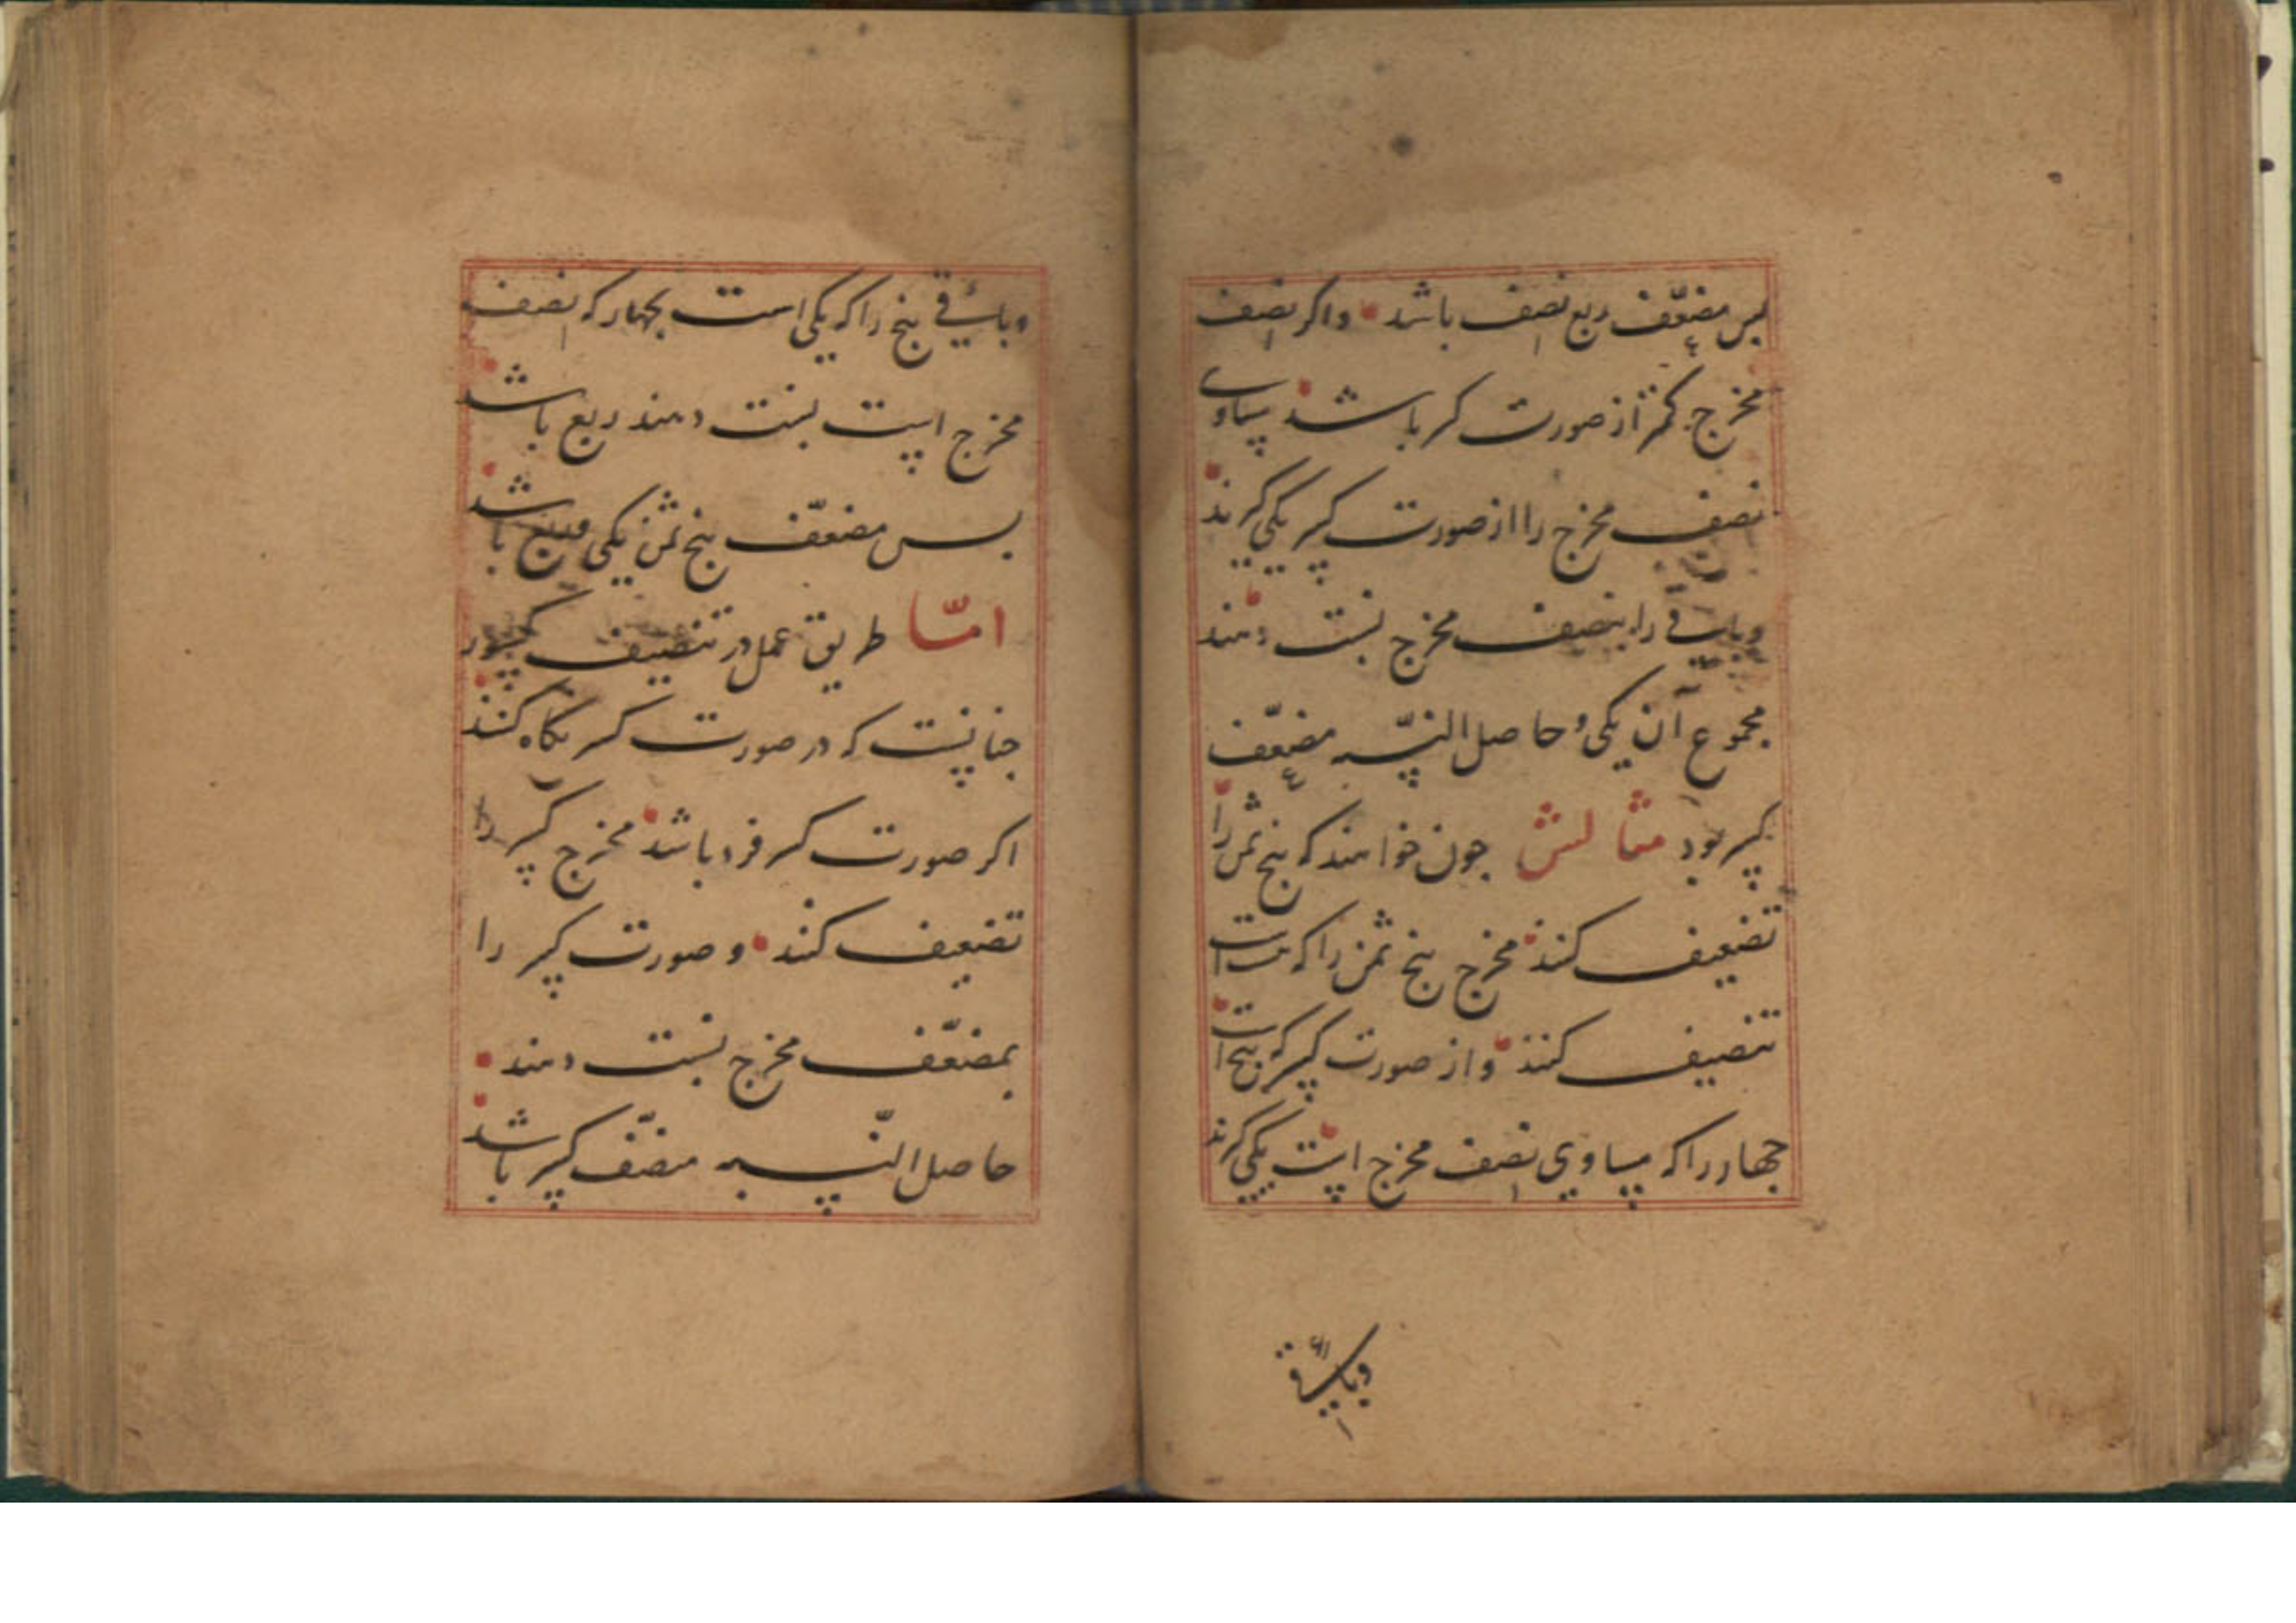 پس مضعّف ربع نصف باشد واکر نصف
مخرج کمتر از صورت کسر باشد مساوی
نصف مخرج را از صورت کسر یکی کیرند
وباقی را بنصف مخرج نسبت دهند
مجموع آن یکی و حاصل النسبه مضعّف
کسر بود مثالش جون خواهند که پنج ثمن را
تضعیف کنند مخرج پنج ثمن را که هشت است
تنصیف کنند و از صورت کسر که پنج است
جهار را که مساوی نصف مخرج است یکی کیرند
وباقی
وباقی پنج را که یکی است بجهار که نصف
مخرج است نسبت دهند ربع باشد
پس مضعّف پنج ثمن یکی وربع باشد
امّا طریق عمل در تنصیف کسور
جنانست که در صورت کسر نکاه کنند
اکر صورت کسر فرد باشد مخرج کسر را
تضعیف کنند و صورت کسر را
بمضعّف مخرج نسبت دهند
حاصل النّسبه منصّف کسر باشد